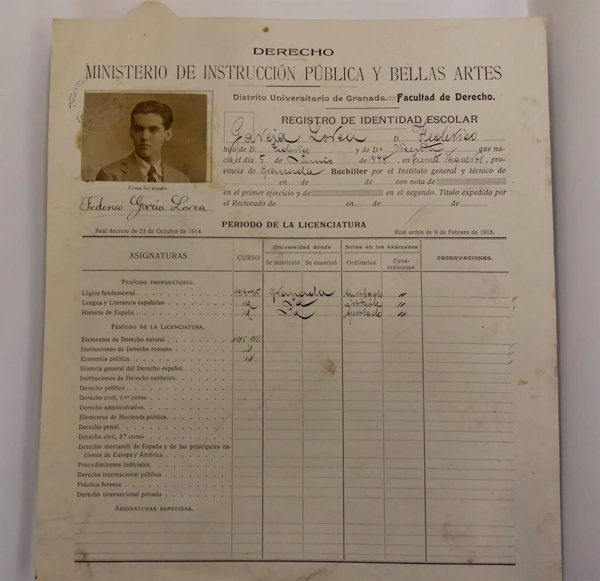 DERECHO
MINISTERIO DE INSTRUCCIÓN PÚBLICA Y BELLAS ARTES
Distrito Universitario de Granada.—Facultad de Derecho.
REGISTRO DE IDENTIDAD ESCOLAR
García Lorca D. Federico
hijo de D. Federico y de D.ª Vicenta que na-
ció el día 5 de Junio de 1898, en Fuente Vaqueros, pro-
vincia de Granada Bachiller por el Instituto general y técnico de
en de de con nota de
en el primer ejercicio y de en el segundo. Título expedido por
el Rectorado de en de de
Firma del alumno
Federico García Lorca
PERIODO DE LA LICENCIATURA
Real decreto de 23 de Octubre de 1914.
Real orden de 8 de Febrero de 1915.
ASIGNATURAS CURSO Universidad donde Notas en los exámenes OBSERVACIONES.
Se matriculó Se examinó. Ordinarios. Extra-
ordinarios.
PERÍODO PREPARATORIO.
Lógica fundamental Granada Aprobado "
Lengua y Literatura españolas id Id Notable "
Historia de España id Id Aprobado "
PERÍODO DE LA LICENCIATURA.
Elementos de Derecho natural 1915-916
Instituciones de Derecho romano id
Economía política id
Historia general del Derecho español
Instituciones de Derecho canónico
Derecho político
Derecho civil, 1.er curso
Derecho administrativo
Elementos de Hacienda pública
Derecho penal
Derecho civil, 2.º curso
Derecho mercantil de España y de las principales na-
ciones de Europa y América
Procedimientos judiciales
Derecho internacional público
Práctica forense
Derecho internacional privado
ASIGNATURAS REPETIDAS.